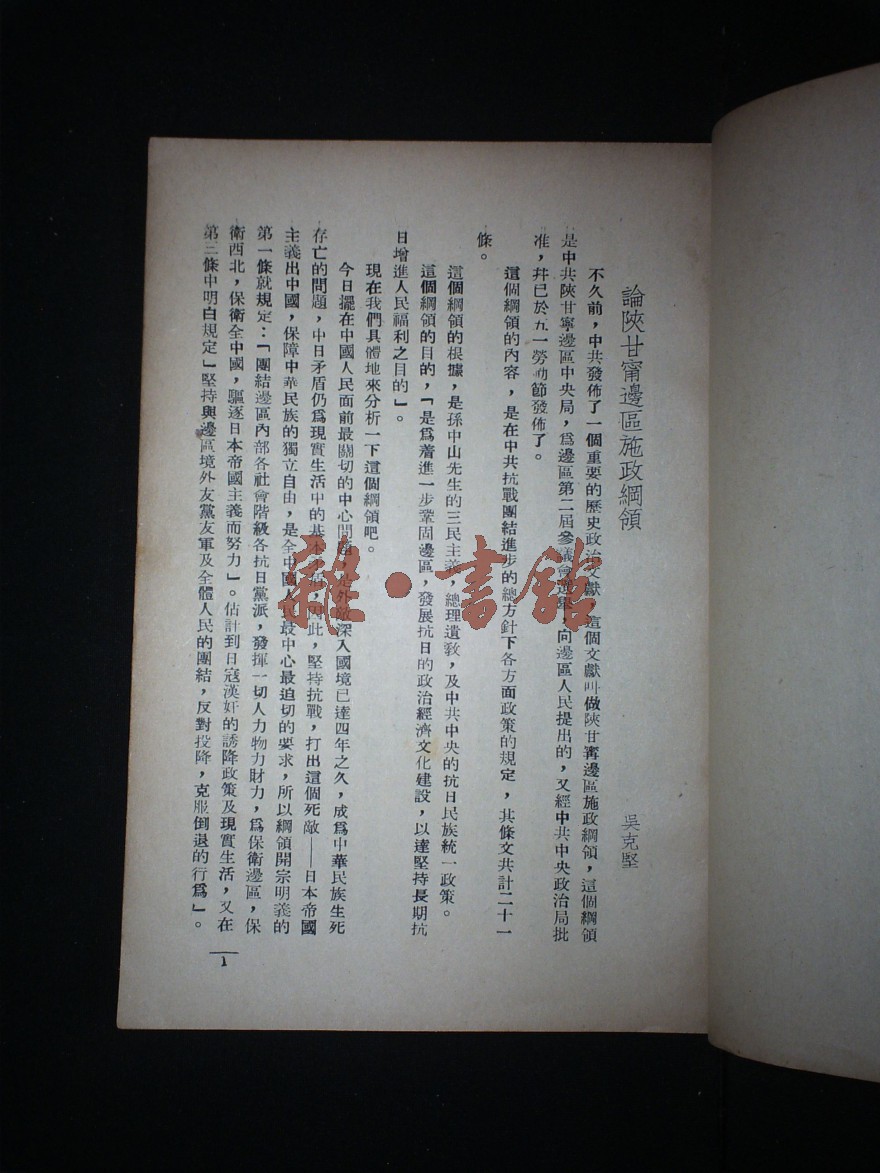 論陜甘甯邊區施政綱領
吳克堅
不久前，中共發佈了一個重要的歷史政治文獻，這個文獻叫做陜甘甯邊區施政綱領，這個綱領
是中共陜甘寧邊區中央局，爲邊區第二屆參議會選舉，向邊區人民提出的，又經中共中央政治局批
准，幷已於五一勞動節發佈了。
這個綱領的內容，是在中共抗戰團結進步的總方針下各方面政策的規定，其條文共計二十一
條。
這個綱領的根據，是孫中山先生的三民主義，總理遺敎，及中共中央的抗日民族統一政策。
這個綱領的目的，「是爲着進一步鞏固邊區，發展抗日的政治經濟文化建設，以達堅持長期抗
日增進人民福利之目的」。
現在我們具體地來分析一下這個綱領吧。
今日擺在中國人民面前最關切的中心問題，是外敵深入國境已達四年之久，成爲中華民族生死
存亡的問題，中日矛盾仍爲現實生活中的基本矛盾，因此，堅持抗戰，打出這個死敵——日本帝國
主義出中國，保障中華民族的獨立自由，是全中國人民最中心最迫切的要求，所以綱領開宗明義的
第一條就規定：「團結邊區內部各社會階級各抗日黨派，發揮一切人力物力財力，爲保衞邊區，保
衞西北，保衞全中國，驅逐日本帝國主義而努力」。估計到日寇漢奸的誘降政策及現實生活，又在
第三條中明白規定」堅持與邊區境外友黨友軍及全體人民的團結，反對投降，克服倒退的行爲」。
1
雜·書館